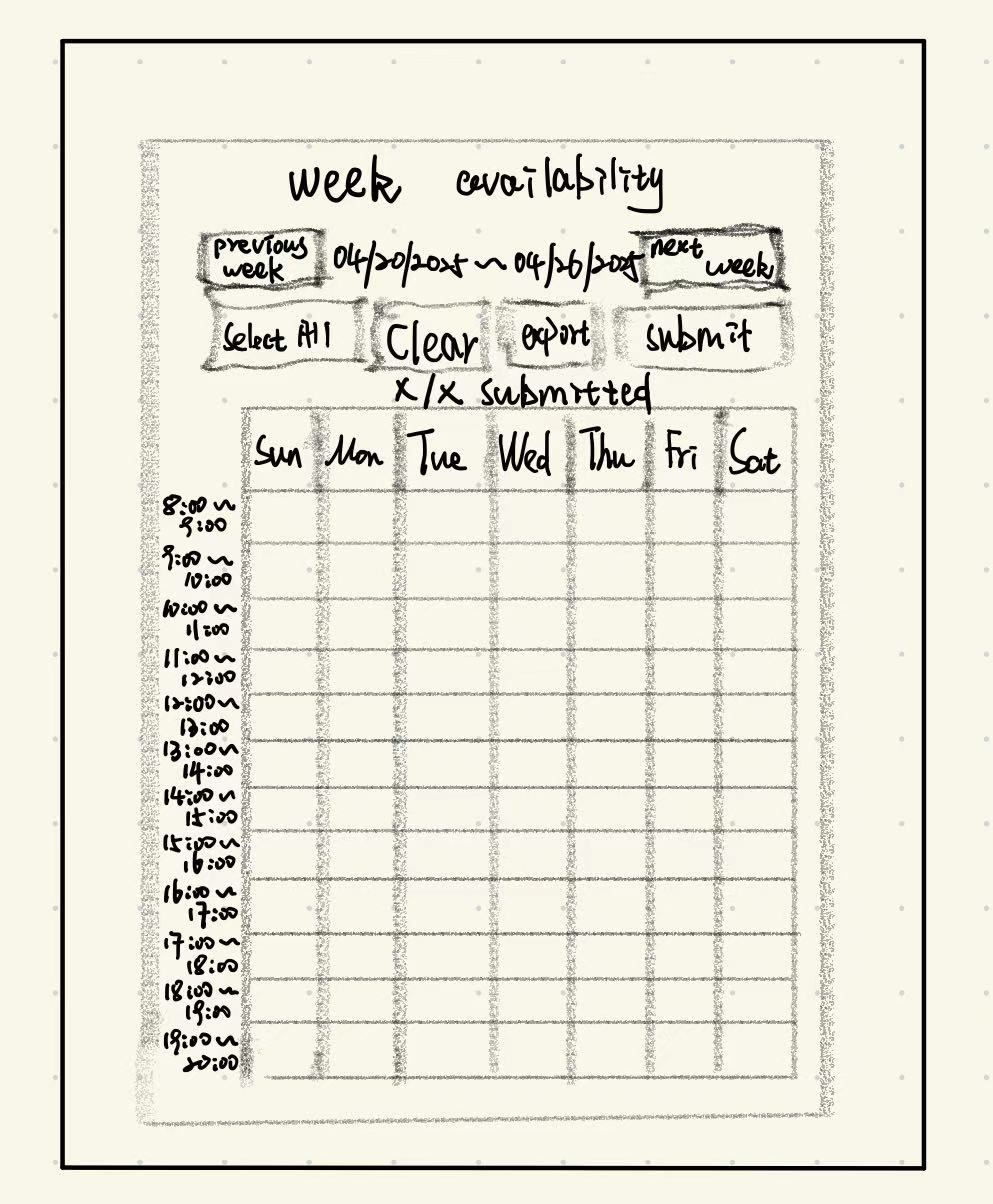 week availability
previous week 04/20/2025 ~ 04/26/2025 next week
Select All Clear export submit
x/x submitted
Sun Mon Tue Wed Thu Fri Sat
8:00~
9:00
9:00~
10:00
10:00~
11:00
11:00~
12:00
12:00~
13:00
13:00~
14:00
14:00~
15:00
15:00~
16:00
16:00~
17:00
17:00~
18:00
18:00~
19:00
19:00~
20:00